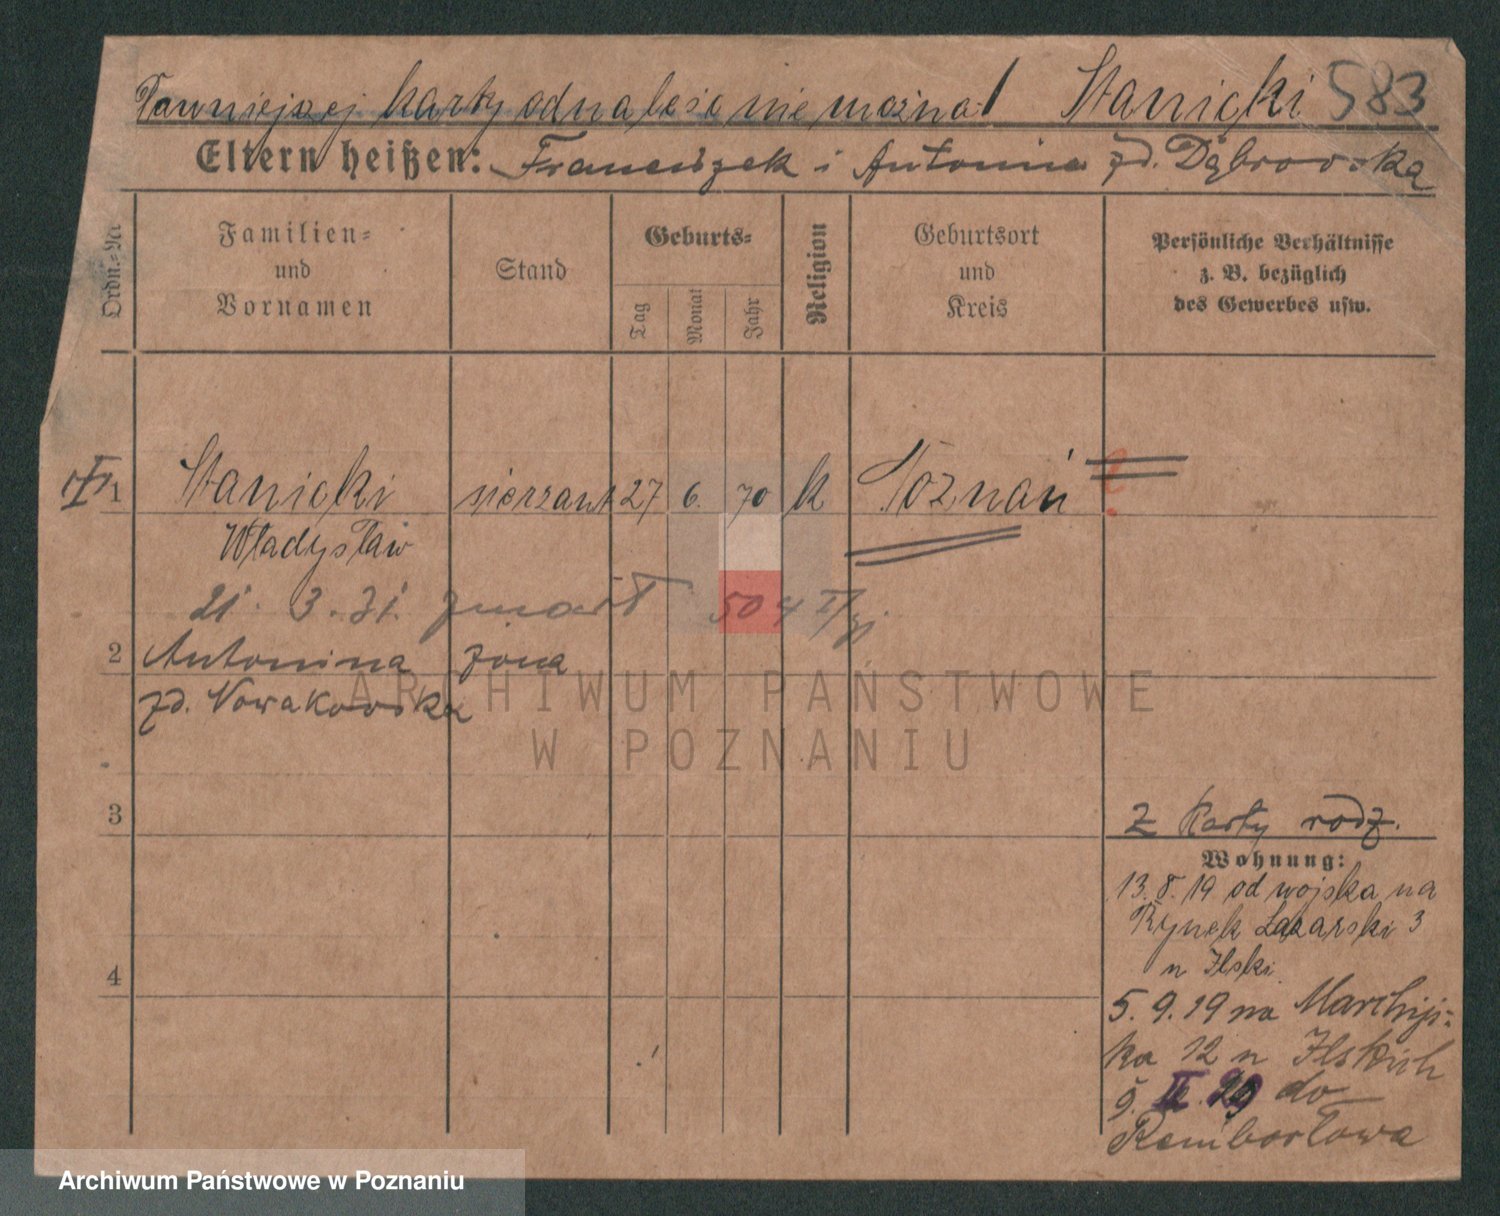 Dawniejszej karty odnaleść nie można! Stanicki 583
Eltern heißen: Franciszek i Antonina zd. Dąbrowska
Ordn.-Nr
Familien-
und
Vornamen
Stand
Geburts-
Tag
Monat
Jahr
Religion
Geburtsort
und
Kreis
Persönliche Verhältnisse
z. B. bezüglich
des Gewerbes usw.
1 Stanicki sierżant 27 6. 70 k Poznań
Władysław
21. 3. 31. zmarł 504 II/31
2 Antonina żona
zd. Nowakowska
ARCHIWUM PAŃSTWOWE
W POZNANIU
3
z karty rodz.
Wohnung:
13. 8. 19 od wojska na
Rynek Łazarski 3
n Ilski
4
5. 9. 19 na
ka 12 n Ilskich
9. II. do
Rembertowa
Archiwum Państwowe w Poznaniu